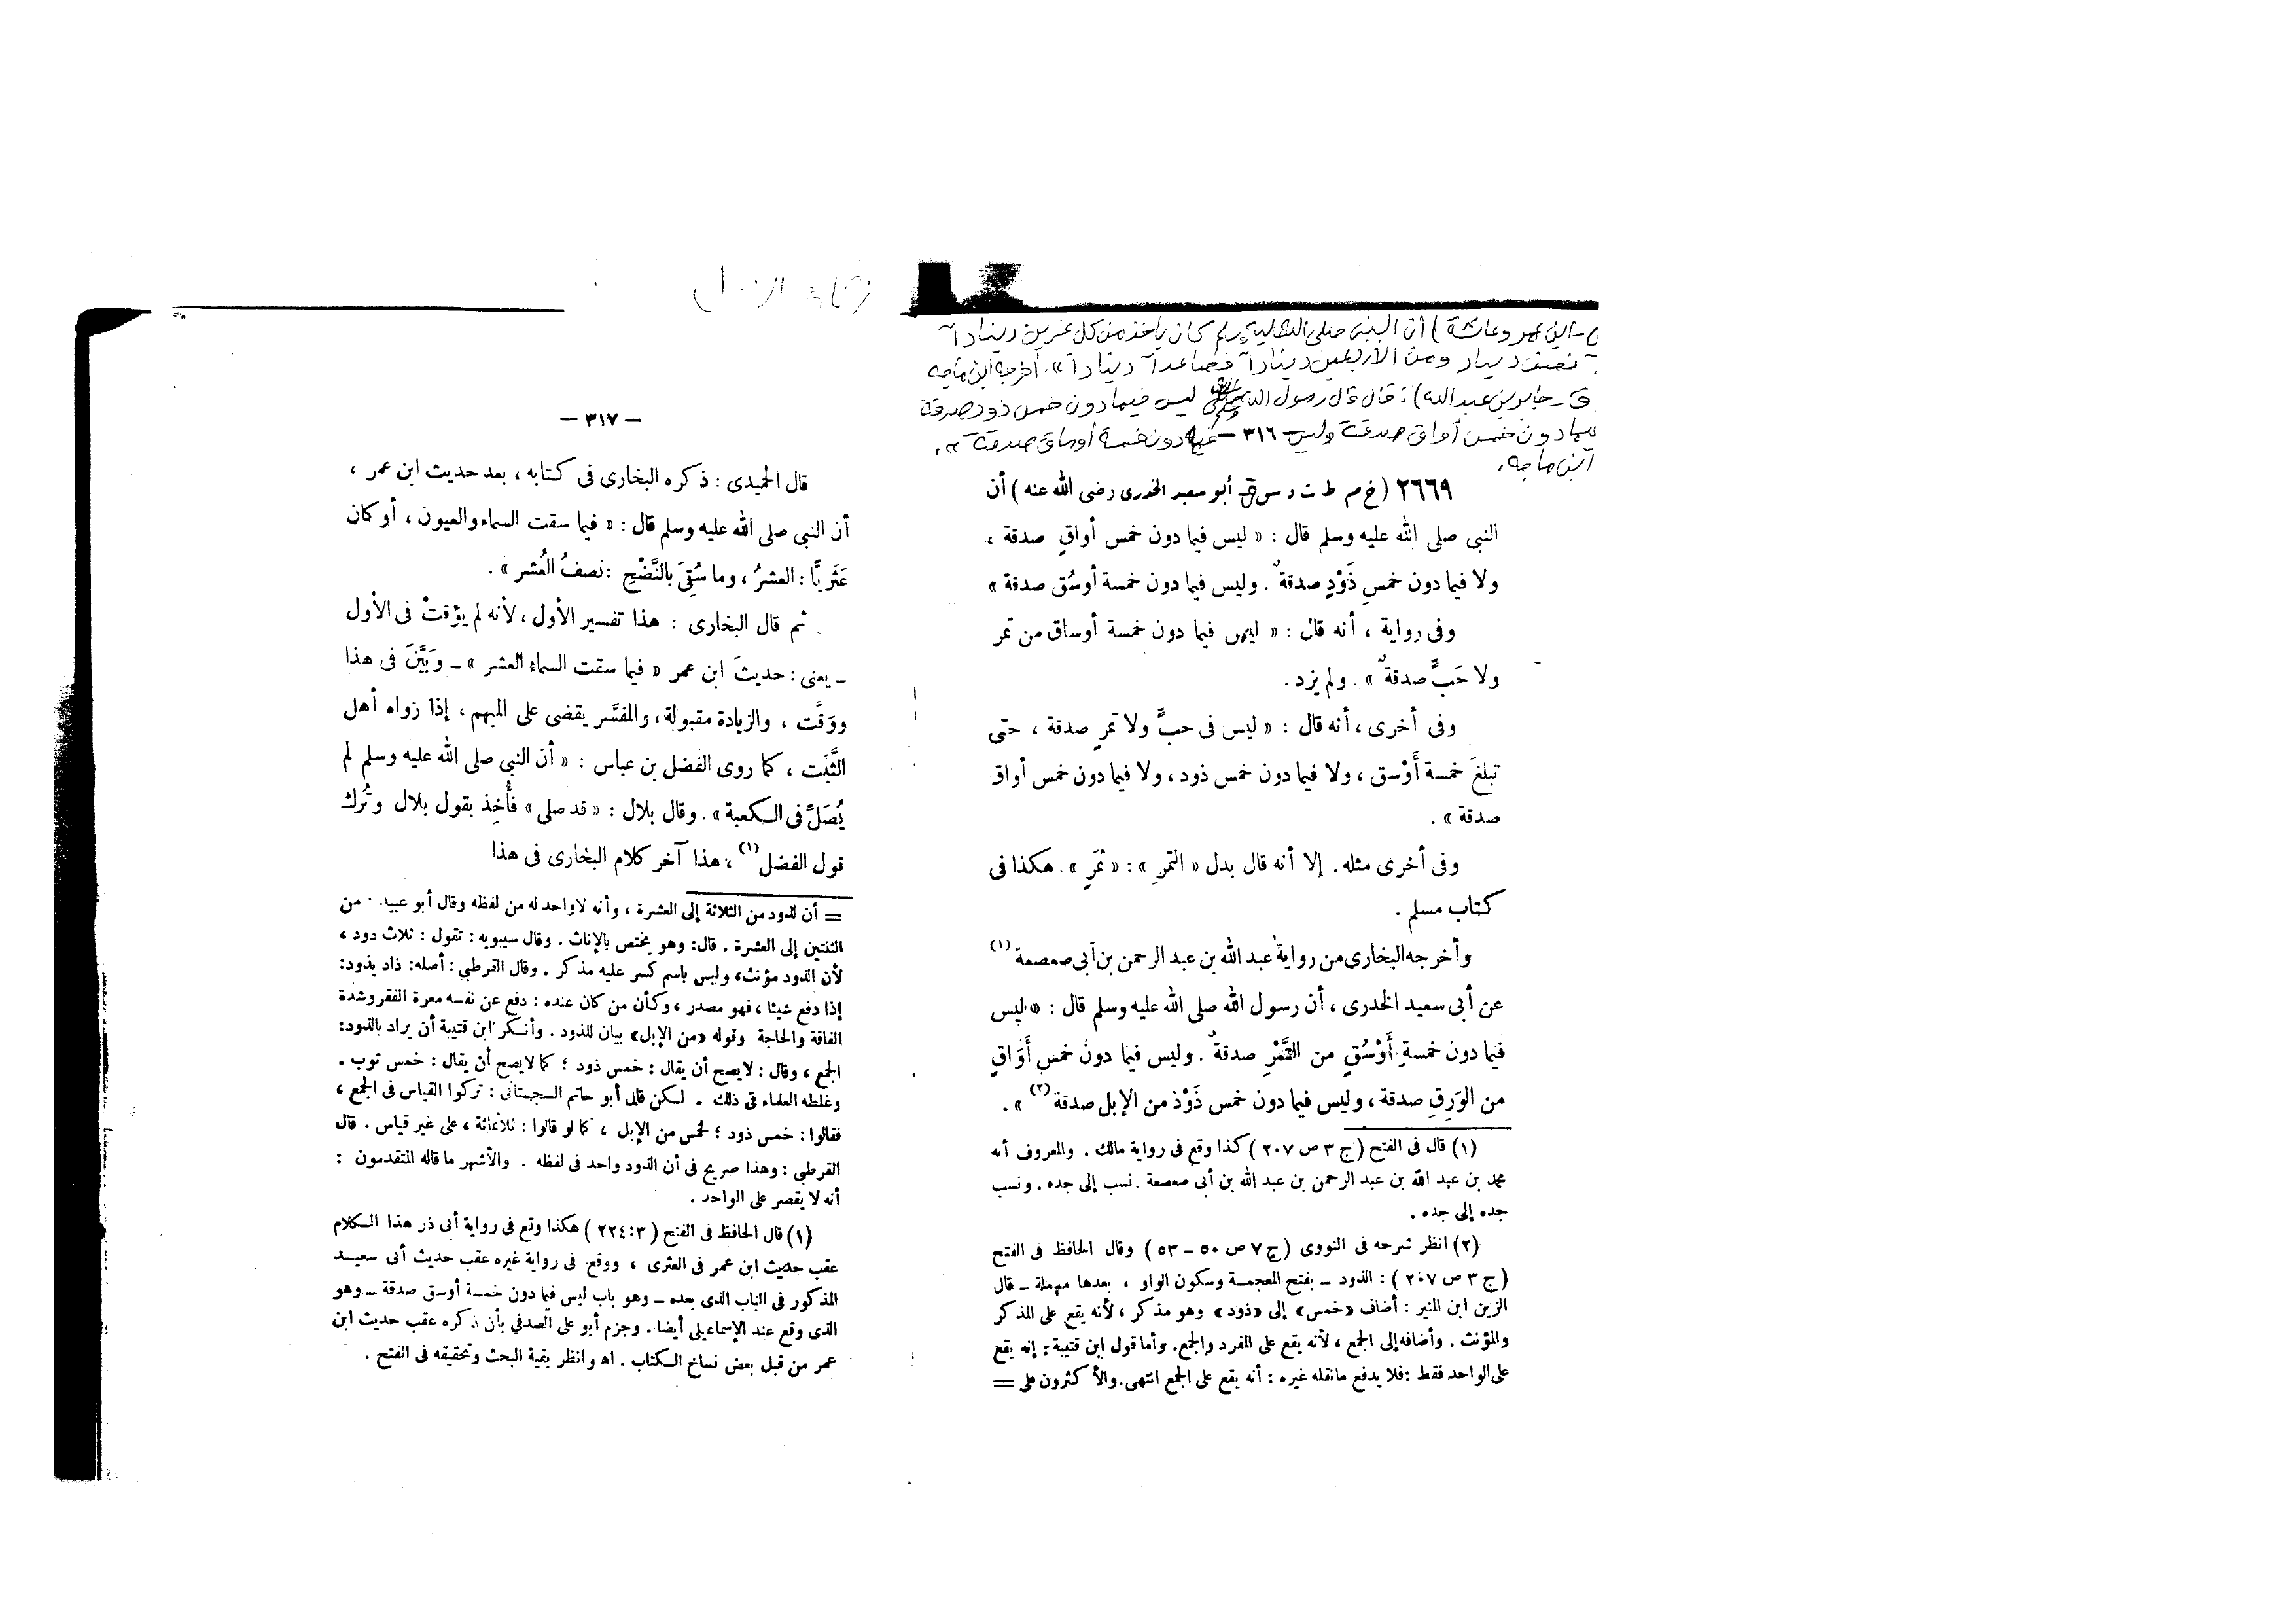 ابن عمر وعائشة ) أن النبى صلى الله عليه وسلم كان يأخذ من كل عشرين دينارا
نصف دينار ومن الأربعين دينارا ديناراً » . أخرجه ابن ماجه
ق - جابر بن عبد الله ) : قال قال رسول الله صلى الله ليس فيما دون خمس ذود صدقة
فيما دون خمس أواق صدقة وليس فيما دون خمسة أوساق صدقة » .
ابن ماجه .
— ٣١٦ —
٢٦٦٩ ( خ م ط ت د س ق - أبو سعيد الخدرى رضى الله عنه ) أن
النبى صلى الله عليه وسلم قال : « ليس فيما دون خمس أواقٍ صدقة ،
ولا فيما دون خمسِ ذَوْدٍ صدقةٌ . وليس فيما دون خمسة أوسُق صدقة »
وفى رواية ، أنه قال : « ليس فيما دون خمسة أوساق من تمر
ولا حَبٍّ صدقةٌ » . ولم يزد .
وفى أخرى ، أنه قال : « ليس فى حبٍّ ولا تمرٍ صدقة ، حتى
تبلغَ خمسة أَوْسق ، ولا فيما دون خمس ذود ، ولا فيما دون خمس أواق
صدقة » .
وفى أخرى مثله . إلا أنه قال بدل « التمرِ » : « ثمَرٍ » . هكذا فى
كتاب مسلم .
وأخرجه البخارى من رواية عبد الله بن عبد الرحمن بن أبى صعصعة (١)
عن أبى سعيد الخدرى ، أن رسول الله صلى الله عليه وسلم قال : « ليس
فيما دون خمسةِ أَوْسُقٍ من التَّمْرِ صدقةٌ . وليس فيما دون خمس أَوَاقٍ
من الوَرِقِ صدقة ، وليس فيما دون خمس ذَوْدٍ من الإبل صدقة (٢) » .
(١) قال فى الفتح ( ج ٣ ص ٢٠٧ ) كذا وقع فى رواية مالك . والمعروف أنه
محمد بن عبد الله بن عبد الرحمن بن عبد الله بن أبى صعصعة . نسب إلى جده . ونسب
جده إلى جده .
(٢) انظر شرحه فى النووى ( ج ٧ ص ٥٠ - ٥٣ ) وقال الحافظ فى الفتح
( ج ٣ ص ٢٠٧ ) : الذود — بفتح المعجمة وسكون الواو ، بعدها مهملة — قال
الزين ابن المنير : أضاف «خمس» إلى «ذود» وهو مذكر ، لأنه يقع على المذكر
والمؤنث . وأضافه إلى الجمع ، لأنه يقع على المفرد والجمع . وأما قول ابن قتيبة : إنه يقع
على الواحد فقط : فلا يدفع ما نقله غيره : أنه يقع على الجمع انتهى . والأكثرون على =
— ٣١٧ —
قال الحميدى : ذكره البخارى فى كتابه ، بعد حديث ابن عمر ،
أن النبى صلى الله عليه وسلم قال : « فيما سقت السماء والعيون ، أو كان
عَثَرِيًّا : العشرُ ، وما سُقِىَ بالنَّضْحِ : نصفُ العُشر » .
ثم قال البخارى : هذا تفسير الأول ، لأنه لم يؤقتْ فى الأول
— يعنى : حديثَ ابن عمر « فيما سقت السماء العشر » — وَبَيَّنَ فى هذا
ووَقَّت ، والزيادة مقبولة ، والمفسَّر يقضى على المبهم ، إذا رواه أهل
الثَّبَت ، كما روى الفضل بن عباس : « أن النبى صلى الله عليه وسلم لم
يُصَلِّ فى الكعبة » . وقال بلال : « قد صلى » فأُخِذ بقول بلال وتُرك
قول الفضل (١) ، هذا آخر كلام البخارى فى هذا
= أن الذود من الثلاثة إلى العشرة ، وأنه لا واحد له من لفظه وقال أبو عبيد . من
الثنتين إلى العشرة . قال: وهو يختص بالإناث . وقال سيبويه : تقول : ثلاث ذود ،
لأن الذود مؤنث، وليس باسم كسر عليه مذكر . وقال القرطبي : أصله: ذاد يذود:
إذا دفع شيئا ، فهو مصدر ، وكأن من كان عنده : دفع عن نفسه معرة الفقر وشدة
الفاقة والحاجة وقوله «من الإبل» بيان للذود . وأنكر ابن قتيبة أن يراد بالذود:
الجمع ، وقال : لا يصح أن يقال : خمس ذود ؛ كما لا يصح أن يقال : خمس ثوب .
وغلطه العلماء فى ذلك . لكن قال أبو حاتم السجستانى : تركوا القياس فى الجمع ،
فقالوا : خمس ذود ؛ لخمس من الإبل ، كما لو قالوا : ثلاثمائة ، على غير قياس . قال
القرطبي : وهذا صريح فى أن الذود واحد فى لفظه . والأشهر ما قاله المتقدمون :
أنه لا يقصر على الواحد .
(١) قال الحافظ فى الفتح ( ٣ : ٢٢٤ ) هكذا وقع فى رواية أبى ذر هذا الكلام
عقب حديث ابن عمر فى العثرى ، ووقع فى رواية غيره عقب حديث أبى سعيد
المذكور فى الباب الذى بعده — وهو باب ليس فيما دون خمسة أوسق صدقة — وهو
الذى وقع عند الإسماعيلى أيضا . وجزم أبو على الصدفي بأن ذكره عقب حديث ابن
عمر من قبل بعض نساخ الكتاب . اه وانظر بقية البحث وتحقيقه فى الفتح .